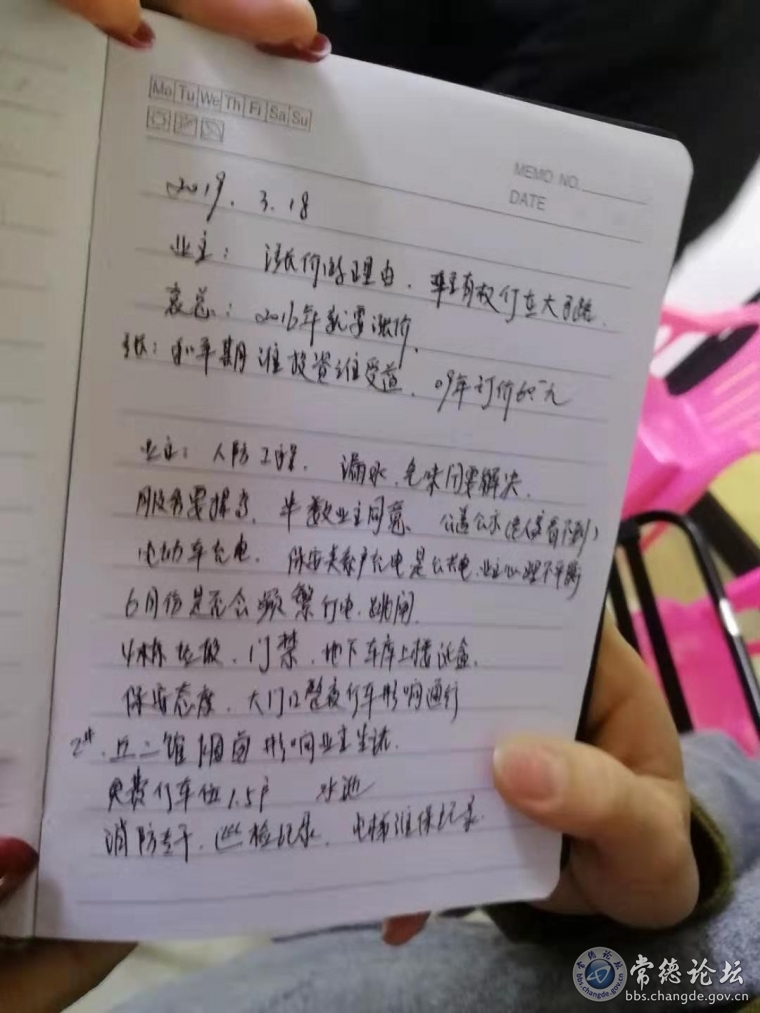 Mo Tu We Th Fi Sa Su
MEMO NO.
DATE
2019.3.18
业主：涨价的理由，业主有权停在大马路.
袁总：2016年就要涨价.
张：和平期谁投资谁受益，09年订价60元
业主：人防工程，漏水，气味问要解决
服务要提高，半数业主同意、公道公示
电动车充电，保安亭充电是公共电，业主心理不平衡
6月份是否会频繁停电，跳闸
4栋垃圾，门禁，地下车库上楼
保安态度，大门口整夜停车影响通行
2#.丘二馆烟囱影响业主生活.
免费停车位1.5户 水池
消防专干，巡检记录，电梯维保记录.
常德论坛
bbs.changde.gov.cn